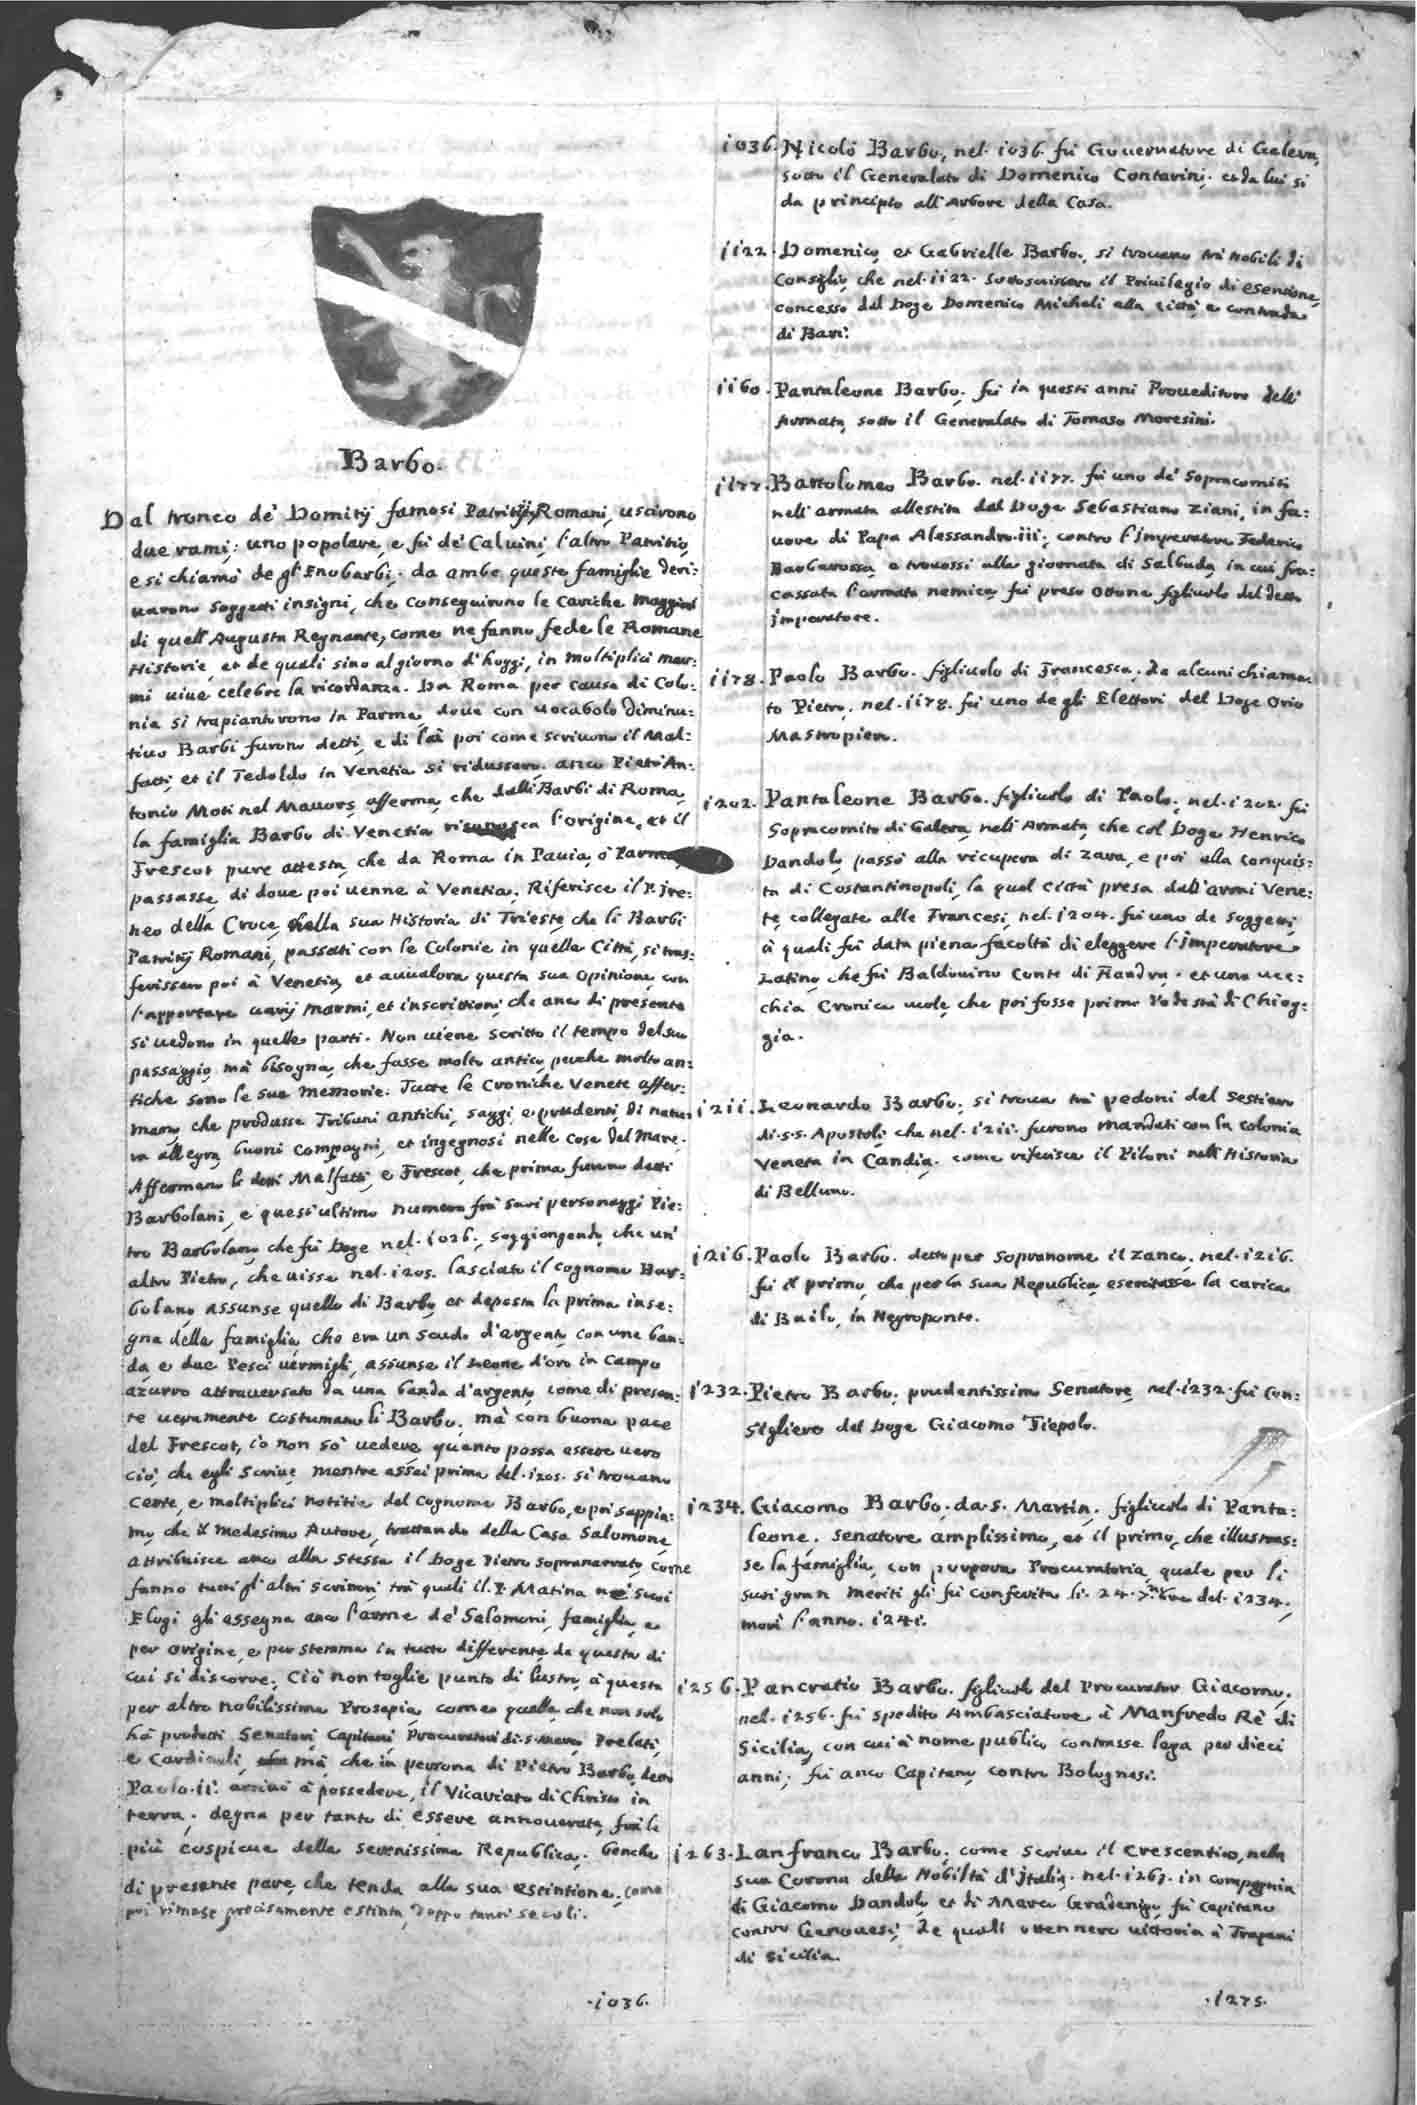 Barbo.
Dal tronco de' Domitij famosi Patritij Romani, uscirono
due rami; uno popolare, e fù de' Caluini, l'altro Patritio,
e si chiamò de gl'Enobarbi. da ambe queste famiglie deri:
uarono soggetti insigni, che conseguirono le cariche maggiori
di quell'Augusta Regnante, come ne fanno fede le Romane
Historie, et de quali sino al giorno d'hoggi, in moltiplici mar:
mi uiue celebre la ricordanza. Da Roma per causa di Colo:
nia si trapiantorono in Parma, doue con uocabolo diminu:
tiuo Barbi furono detti, e di là poi come scriuono il Mal:
fatti, et il Tedoldo in Venetia si ridussero. anco Pietro An:
tonio Moti nel Mauors afferma, che dalli Barbi di Roma,
la famiglia Barbo di Venetia riconosca l'origine, et il
Frescot pure attesta, che da Roma in Pauia, ò Parma,
passasse, di doue poi uenne à Venetia. Riferisce il P. Ire:
neo della Croce, nella sua Historia di Trieste, che li Barbi
Patritij Romani, passati con le Colonie in quella Città, si tras:
ferissero poi à Venetia, et auualora questa sua opinione, con
l'apportare uarij marmi, et inscrittioni, che anco di presente
si uedono in quelle parti. Non uiene scritto il tempo del suo
passaggio, mà bisogna, che fosse molto antico, perche molto an:
tiche sono le sue memorie. Tutte le Croniche Venete affer:
mano, che produsse Tribuni antichi, saggi, e prudenti, di natu:
ra allegra, buoni compagni, et ingegnosi nelle cose del mare.
Affermano li detti Malfatti, e Frescot, che prima furono detti
Barbolani, e quest'ultimo numera frà suoi personaggi Pie:
tro Barbolano, che fù Doge nel. 1026., soggiongendo, che un'
altro Pietro, che uisse nel. 1205. lasciato il cognome Bar:
bolano, assunse quello di Barbo, et deposta la prima inse:
gna della famiglia, che era un scudo d'argento, con una ban:
da, e due Pesci uermigli, assunse il Leone d'oro in campo
azurro attrauersato da una banda d'argento, come di presen:
te ueramente costumano li Barbo. mà con buona pace
del Frescot, io non sò uedere quanto possa essere uero
ciò, che egli scriue, mentre assai prima del. 1205. si trouano
certe, e moltiplici notitie del cognome Barbo, e poi sappia:
mo, che il medesimo Autore, trattando della Casa Salomone,
attribuisce anco alla stessa il Doge Pietro sopranarrato, come
fanno tutti gl'altri scrittori, trà quali il P. Matina ne suoi
Elogi gli assegna anco l'arme de' Salomoni, famiglia, e
per origine, e per stemma in tutto differente da questa di
cui si discorre. Ciò non toglie punto di lustro, à questa
per altro nobilissima Prosapia, come quella, che non solo
hà prodotti Senatori, Capitani, Procuratori di. S. Marco, Prelati,
e Cardinali, mà, che in persona di Pietro Barbo, detto
Paolo. II. arriuò à possedere, il Vicariato di Christo in
terra. degna per tanto di essere annouerata, frà le
più cospicue della serenissima Republica. benche
di presente pare, che tenda alla sua estintione, come
poi rimase precisamente estinta, doppo tanti secoli.
.1036.
1036. Nicolò Barbo, nel. 1036. fù Gouernatore di Galera,
sotto il Generalato di Domenico Contarini. et da lui si
da principio all'Arbore della Casa.
1122. Domenico, et Gabrielle Barbo, si trouano trà nobili di
Consiglio, che nel. 1122. sottoscrissero il Priuilegio di esentione,
concesso dal Doge Domenico Micheli alla Città, e contrada
di Bari.
1160. Pantaleone Barbo. fù in questi anni Proueditore dell'
Armata, sotto il Generalato di Tomaso Moresini.
1177. Bartolomeo Barbo. nel. 1177. fù uno de' Sopracomiti
nell'armata allestita dal Doge Sebastiano Ziani, in fa:
uore di Papa Alessandro. III., contro l'Imperatore Federico
Barbarossa, e trouossi alla giornata di Salboda, in cui fra:
cassata l'armata nemica, fù preso Ottone figliuolo del detto
Imperatore.
1178. Paolo Barbo. figliuolo di Francesco. da alcuni chiama:
to Pietro. nel. 1178. fù uno de gli Elettori del Doge Orio
Mastropiero.
1202. Pantaleone Barbo. figliuolo di Paolo. nel. 1202. fù
Sopracomito di Galera, nell'Armata, che col Doge Henrico
Dandolo, passò alla ricupera di Zara, e poi alla conquis:
ta di Costantinopoli, la qual città presa dall'armi Vene:
te, collegate alle Francesi, nel. 1204. fù uno de soggetti,
à quali fù data piena facoltà di eleggere l'Imperatore
Latino, che fù Baldouino Conte di Fiandra. et una uec:
chia Cronica uole, che poi fosse primo Podestà di Chiog:
gia.
1211. Leonardo Barbo. si troua trà pedoni del Sestiero
di. S.S. Apostoli, che nel. 1211. furono mandati con la colonia
Veneta in Candia. come riferisce il Piloni nell'Historia
di Belluno.
1216. Paolo Barbo. detto per sopranome il Zanco, nel. 1216.
fù il primo, che per la sua Republica, esercitasse la carica
di Bailo, in Negroponte.
1232. Pietro Barbo. prudentissimo Senatore, nel. 1232. fù Con:
sigliero del Doge Giacomo Tiepolo.
1234. Giacomo Barbo. da. S. Martin. figliuolo di Panta:
leone. Senatore amplissimo, et il primo, che illustras:
se la famiglia, con porpora Procuratoria, quale per li
suoi gran meriti gli fù conferita li. 24. 7.mbre del. 1234.,
morì l'anno. 1241.
1256. Pancratio Barbo. figliuolo del Procurator Giacomo.
nel. 1256. fù spedito Ambasciatore à Manfredo Rè di
Sicilia, con cui à nome publico, contrasse lega per dieci
anni. fù anco Capitano, contro Bolognesi.
1263. Lanfranco Barbo. come scriue il Crescentio, nella
sua Corona della Nobiltà d'Italia. nel. 1263. in compagnia
di Giacomo Dandolo, et di Marco Gradenigo, fù capitano
contro Genouesi, de quali ottennero uittoria à Trapani
di Sicilia.
.1275.